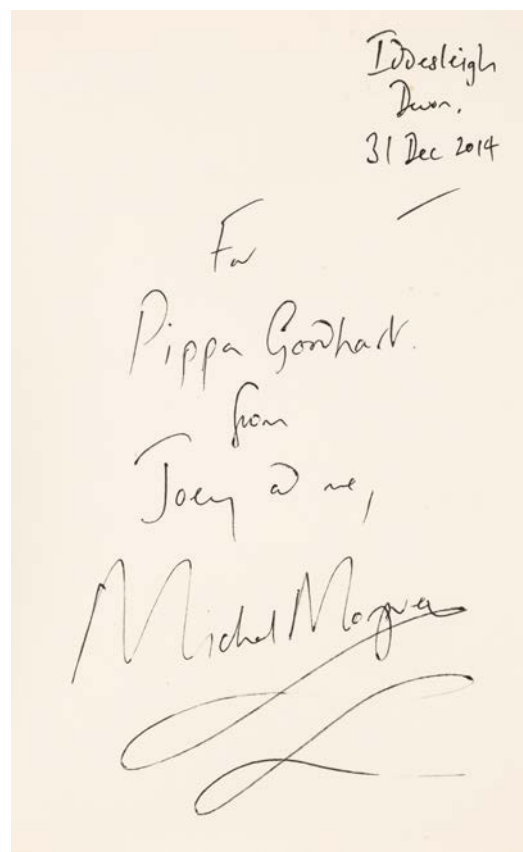 Iddesleigh
Devon.
31 Dec 2014
For
Pippa Goodhart.
from
Joey & me,
Michael Morpurgo